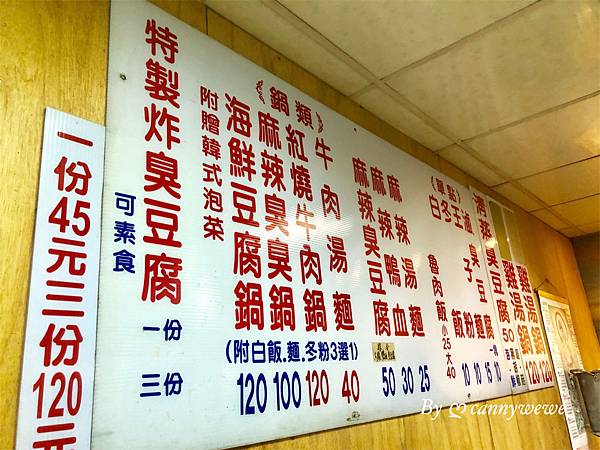 一份45元三份120元
特製炸臭豆腐
可素食
一份
三份
附贈韓式泡菜
《鍋類》
海鮮豆腐鍋
麻辣臭臭鍋
紅燒牛肉鍋
牛肉湯麵
(附白飯.麵.冬粉3選1)
120 100 120 40
麻辣臭豆腐
麻辣鴨血
麻辣湯麵
50 30 25
《單點》
魯肉飯小25大40
白飯
冬粉
王子麵
滷臭豆腐
10 10 15 10
By ♡ cannywewe